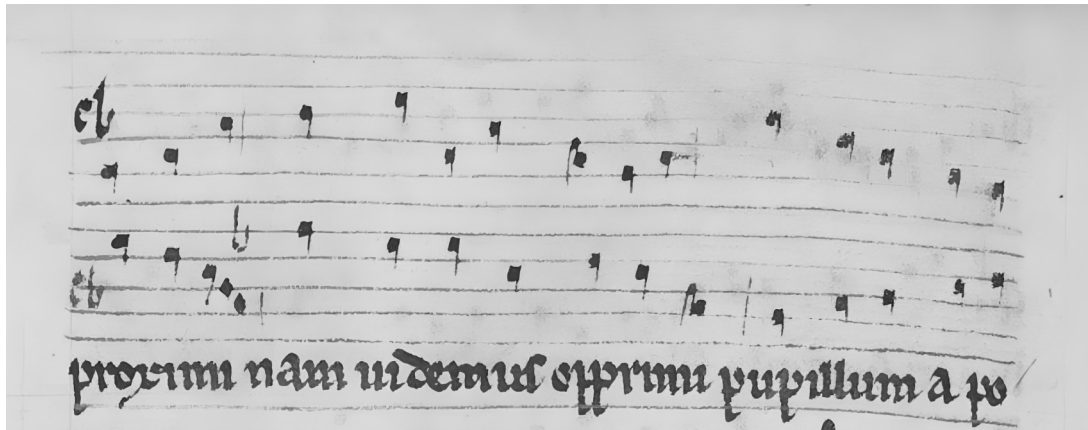 proximi nam uidemus opprimi pupillum a po